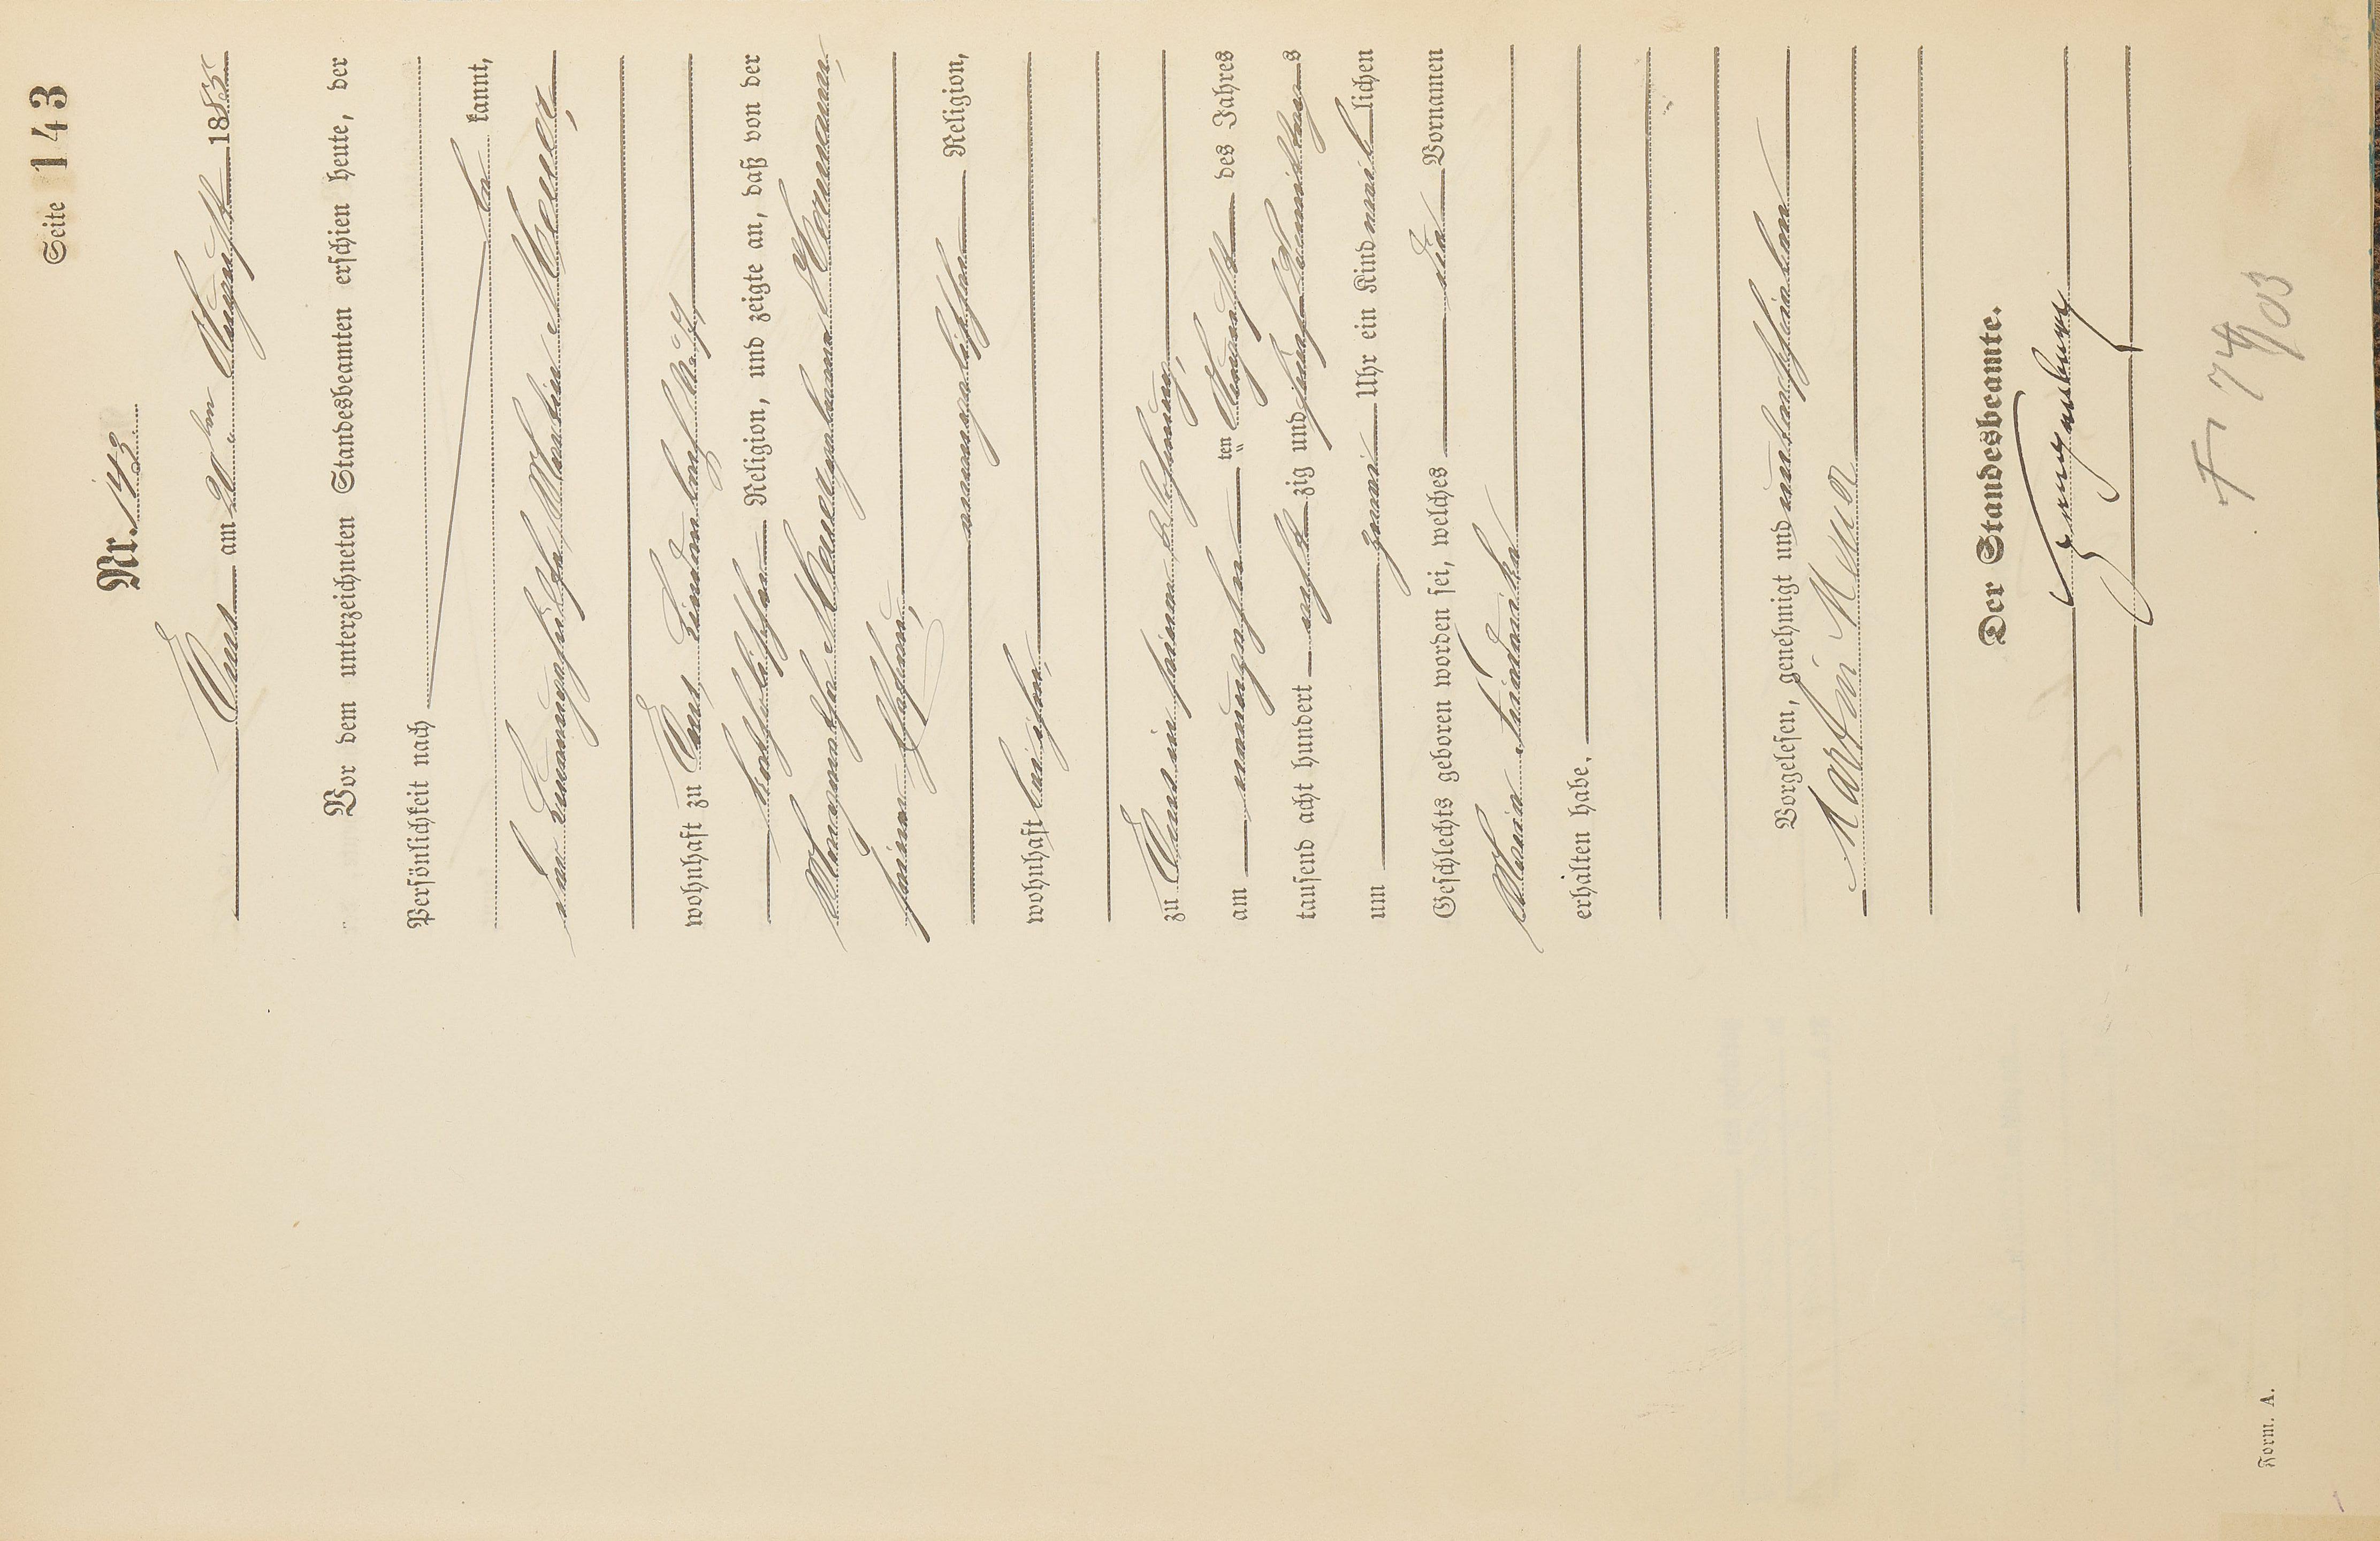 Seite 143
Nr. 143.
Ems am 20ten August 1885
Vor dem unterzeichneten Standesbeamten erschien heute, der
Persönlichkeit nach
be kannt,
Martin Meuer,
wohnhaft zu Ems
katholischer Religion, und zeigte an, daß von der
Margarethe Meuer geborene Hermann,
seiner Ehefrau,
evangelischer Religion,
wohnhaft bei ihm,
zu Ems in seiner Wohnung,
am neunzehnten August des Jahres
tausend acht hundert acht zig und fünf Vormittags
um zwei Uhr ein Kind männlichen
Geschlechts geboren worden sei, welches den Vornamen
erhalten habe.
Vorgelesen, genehmigt und unterschrieben
Martin Meuer
Der Standesbeamte.
F 74/03
Form. A.